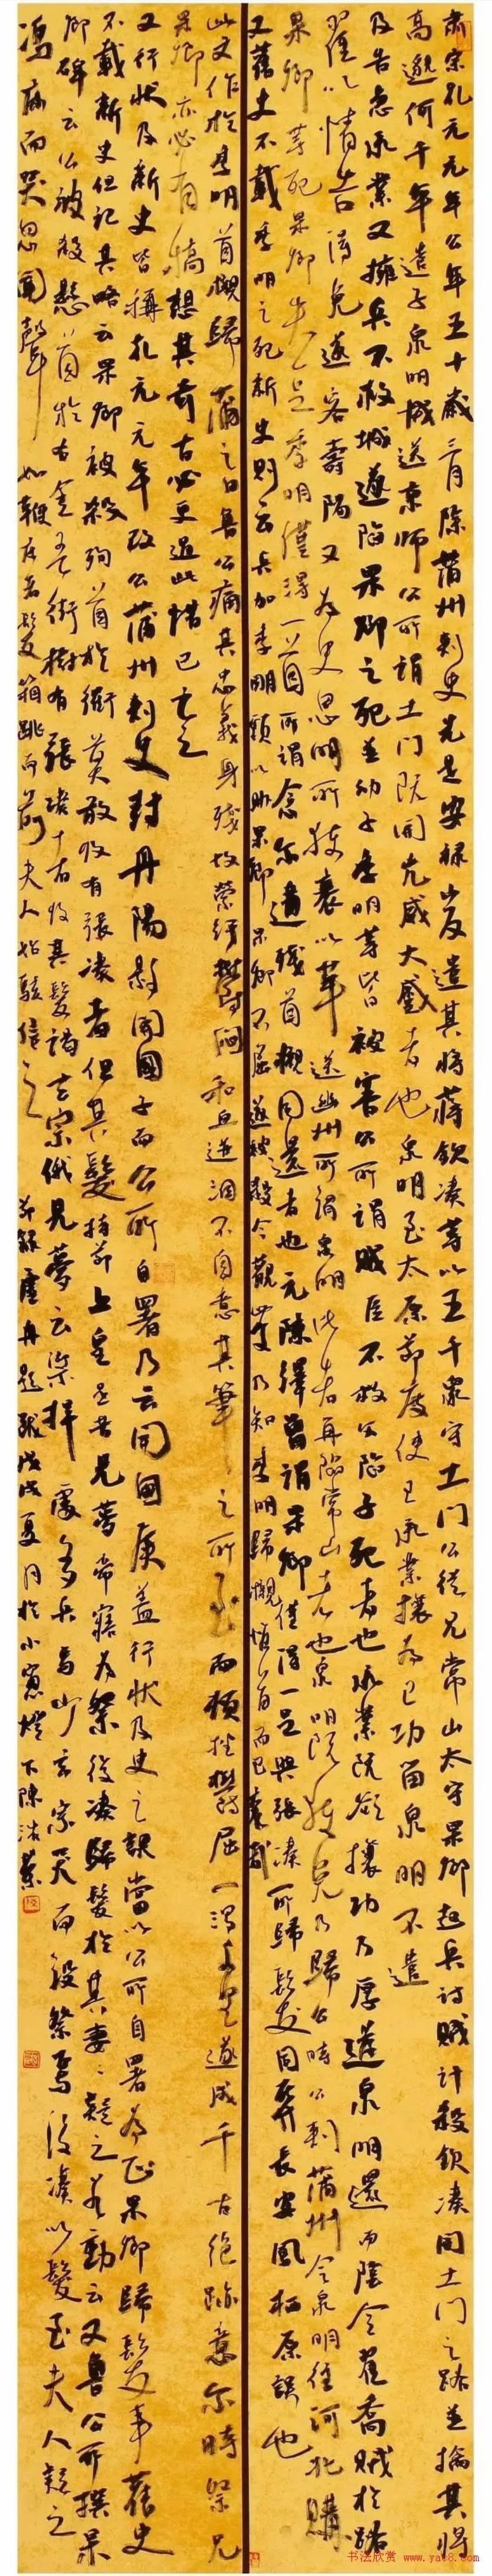 肃宗乳元元年公年五十歲三月除蒲州刺史先是安禄山反遣其將蒋欽凑等以五千衆守土門公從兄常山太守杲卿起兵討賊計殺欽凑開土門之路並擒其將
高邈何千年遣子泉明械送京師公所謂土門既開兇威大蹙者也泉明至太原節度使王承業攘為己功留泉明不遣
及告急承業又擁兵不救城遂陷杲卿之死並幼子季明等皆被害公所謂賊臣不救父陷子死者也承業既欲攘功乃厚遺泉明還而陰令翟喬賊於路
翟以情告得免遂客壽陽又為史思明所執裹以革送幽州所謂泉明比者再陷常山者也泉明既獲免乃歸公時公刺蒲州令泉明往河北購
杲卿等死杲卿失一足季明僅得一首所謂念尔遘殘首櫬同還者也元陳繹曾謂杲卿僅得一足與張凑所歸髪同葬長安鳳栖原誤也
又舊史不載季明之死新史則云兵加季明頸以助杲卿杲卿不屈遂被殺今觀此文乃知季明歸櫬惟首而已
此文作於季明首櫬歸蒲之日魯公痛其忠義身殘故縈紆鬱悶和血迸泪不自意其筆之所至而頓挫鬱屈一瀉千里遂成千古絶跡意尔時祭兄
杲卿亦必有稿想其奇古必更過此惜已亡之
又行状及新史皆稱乳元元年改公蒲州刺史封丹陽縣開國子而公所自署乃云開國侯蓋行状及史之誤當以公所自署為正杲卿歸髪事舊史
不載新史但記其略云杲卿被殺殉首於衢莫敢收有張凑者但其髮持詣上皇是昔見夢帝寤為祭後凑歸髮於其妻妻疑之若動云又魯公所撰杲
卿碑云公被殺懸首於右金吾街樹有張凑者收其髮謁玄宗俄見夢云梁拝處多兵馬少玄宗哭而設祭焉後凑以髮至夫人疑之
馮床而哭恩聞聲如鞭床者髮箱跳而前夫人始駭信之 節録虚舟題跋戊戌夏月於小窗燈下陳洪
书法欣赏 www.yac8.com